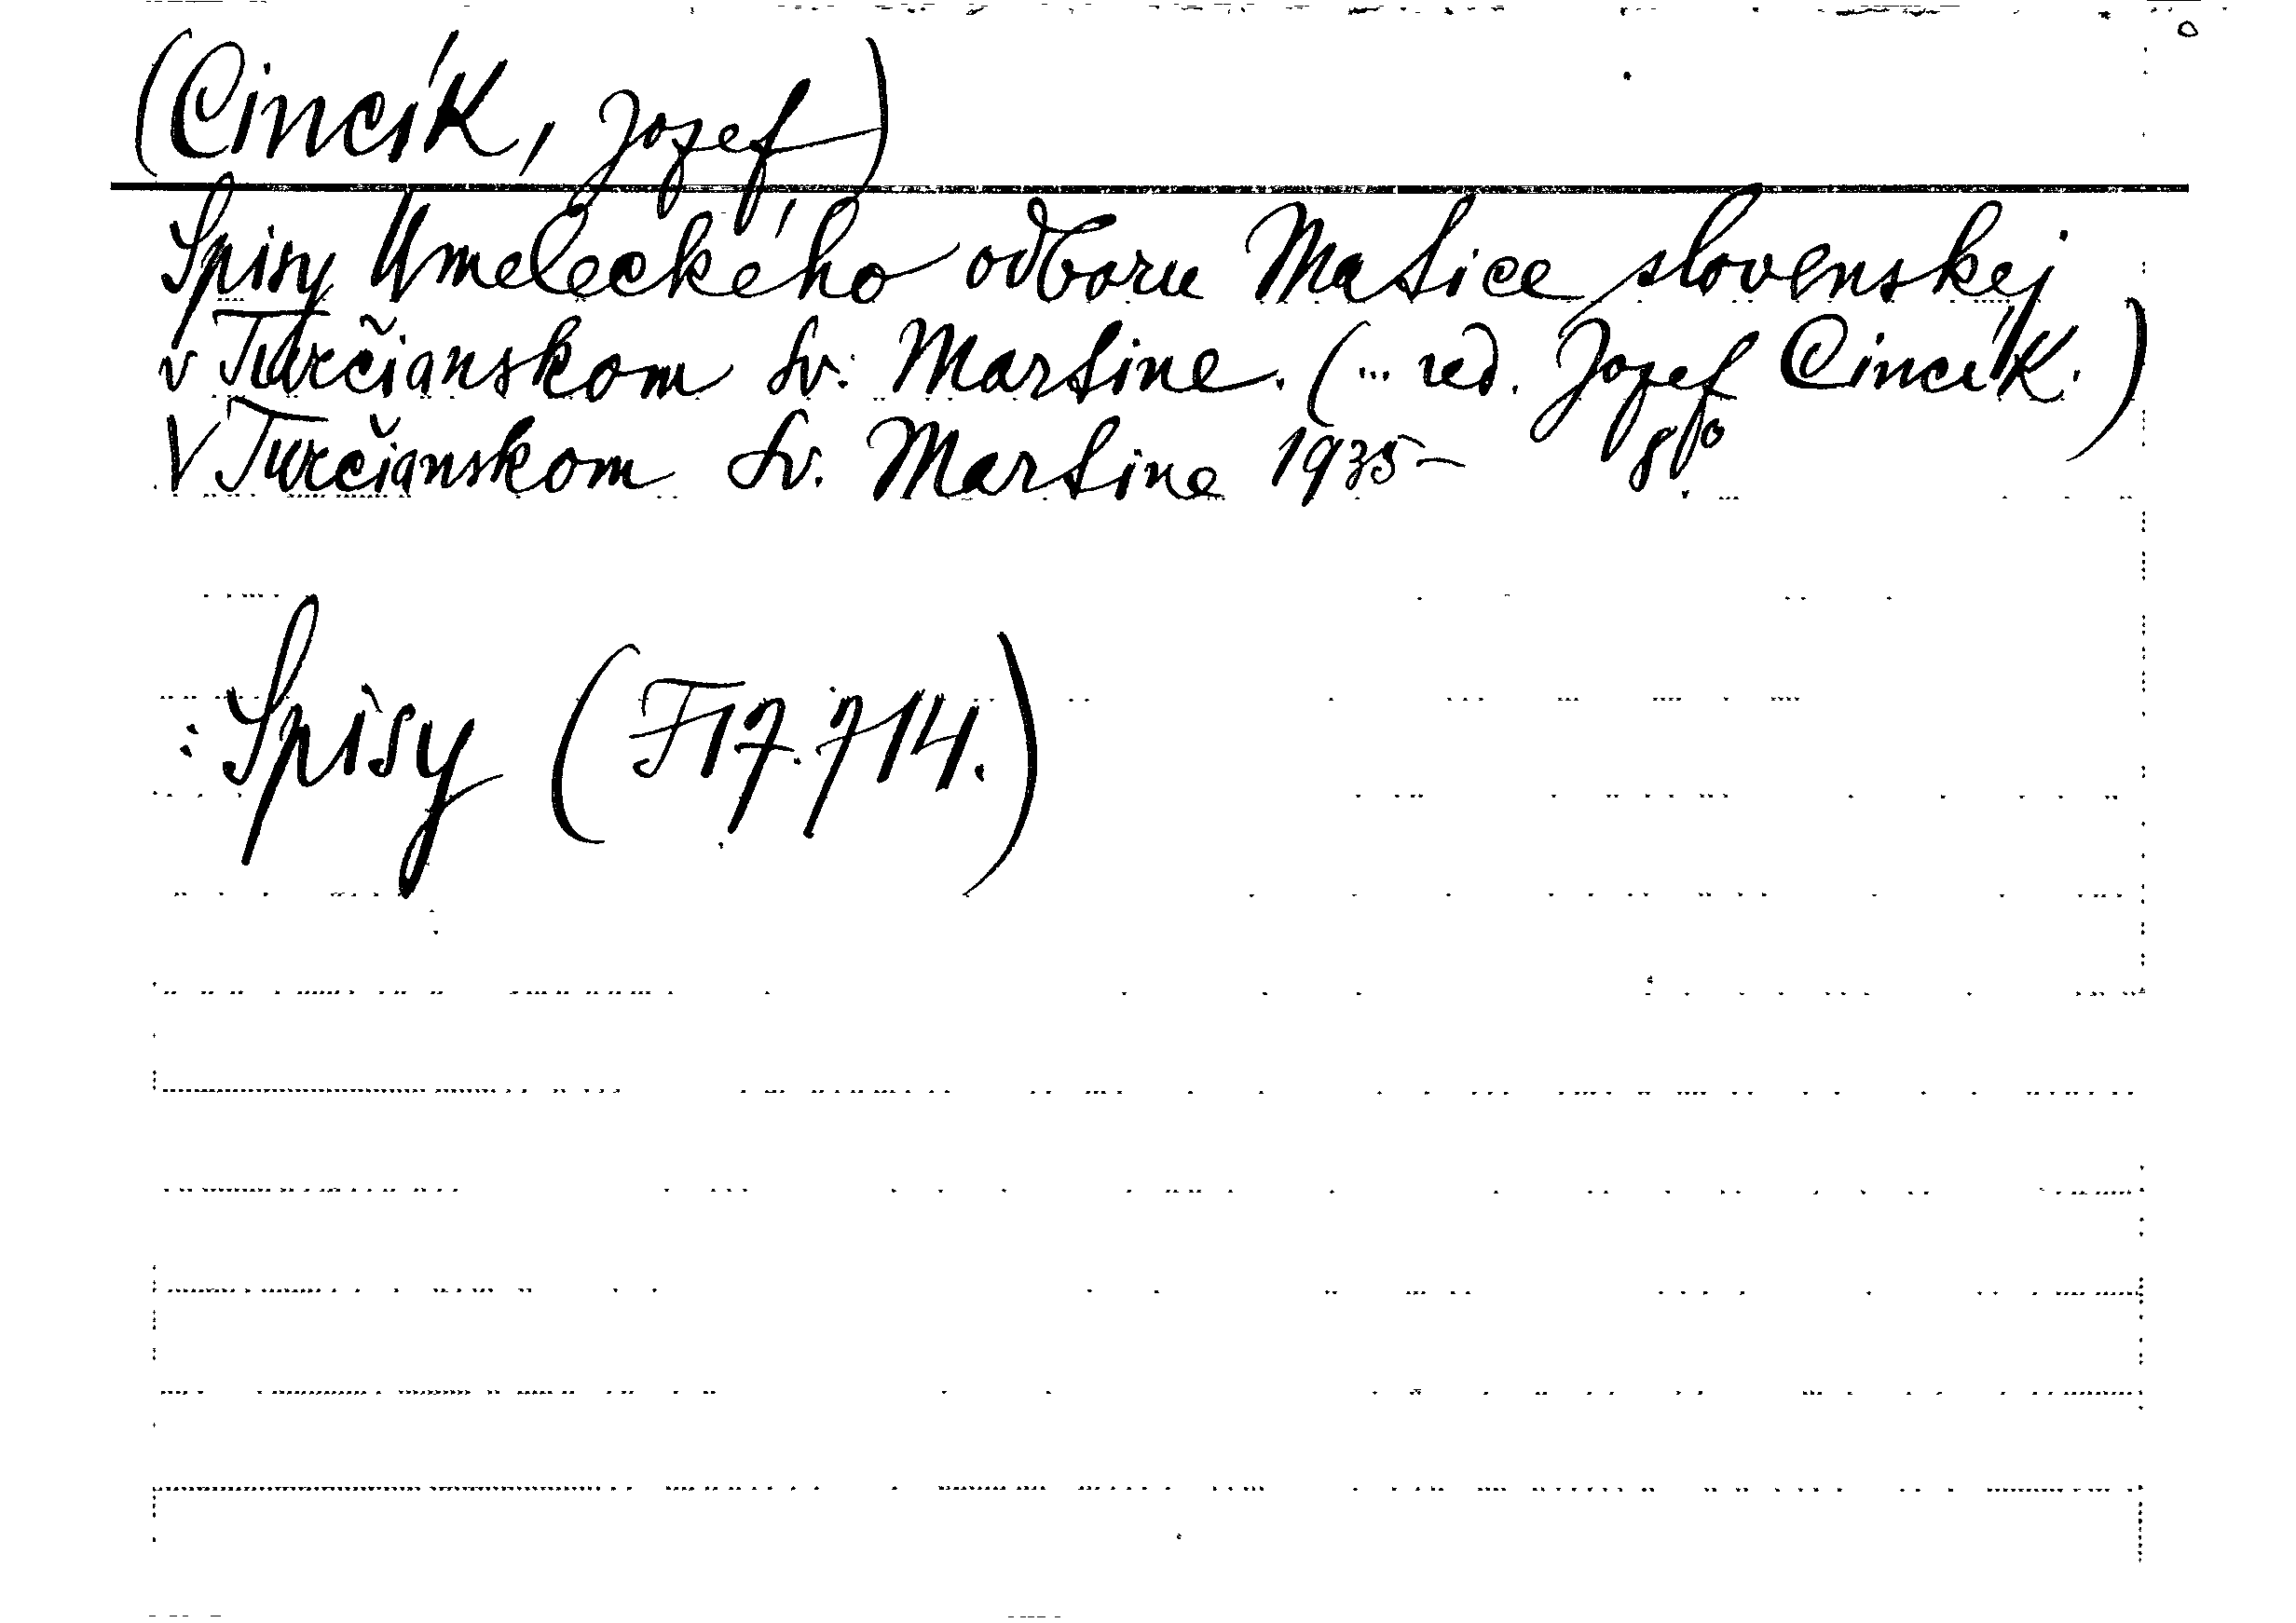 (Cincík, Jozef)
Spisy Umeleckého odboru Matice slovenskej
v Turčianskom Sv. Martine. (... red. Jozef Cincík.)
V Turčianskom Sv. Martine 1935- 8°
: Spisy (F17.714.)